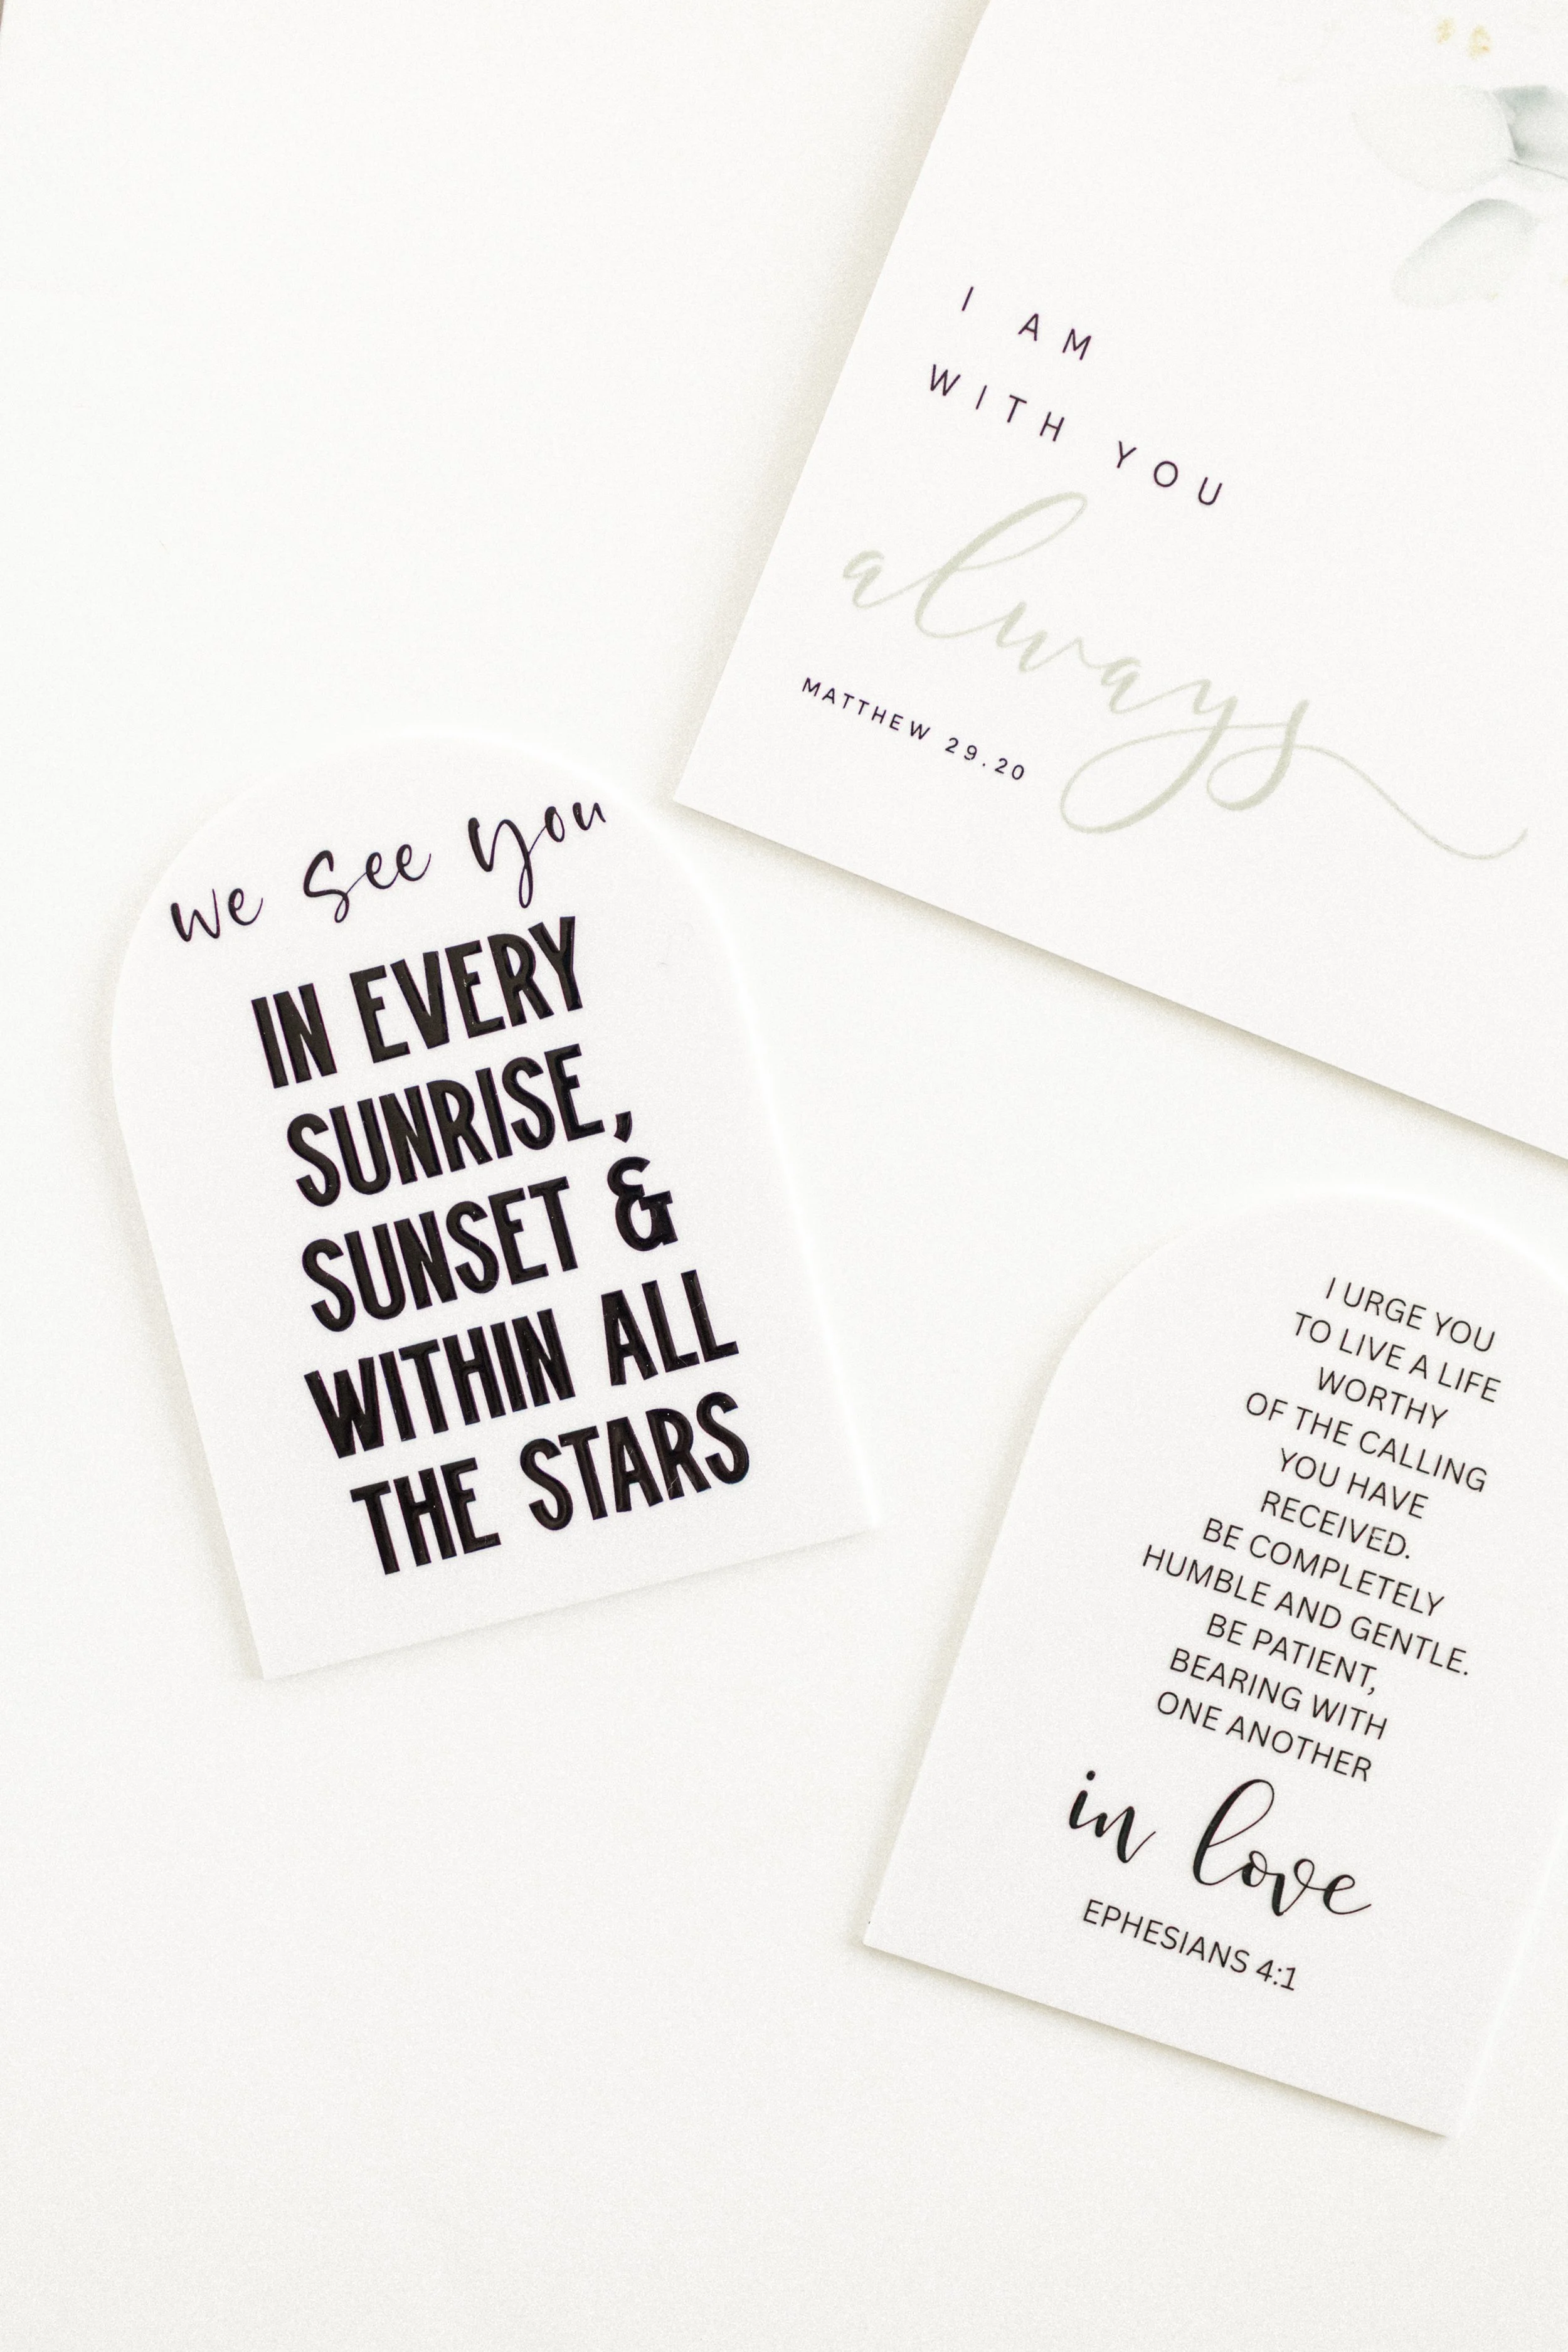 I AM
WITH YOU
always
MATTHEW 29.20
we see you
IN EVERY
SUNRISE,
SUNSET &
WITHIN ALL
THE STARS
I URGE YOU
TO LIVE A LIFE
WORTHY
OF THE CALLING
YOU HAVE
RECEIVED.
BE COMPLETELY
HUMBLE AND GENTLE.
BE PATIENT,
BEARING WITH
ONE ANOTHER
in love
EPHESIANS 4:1